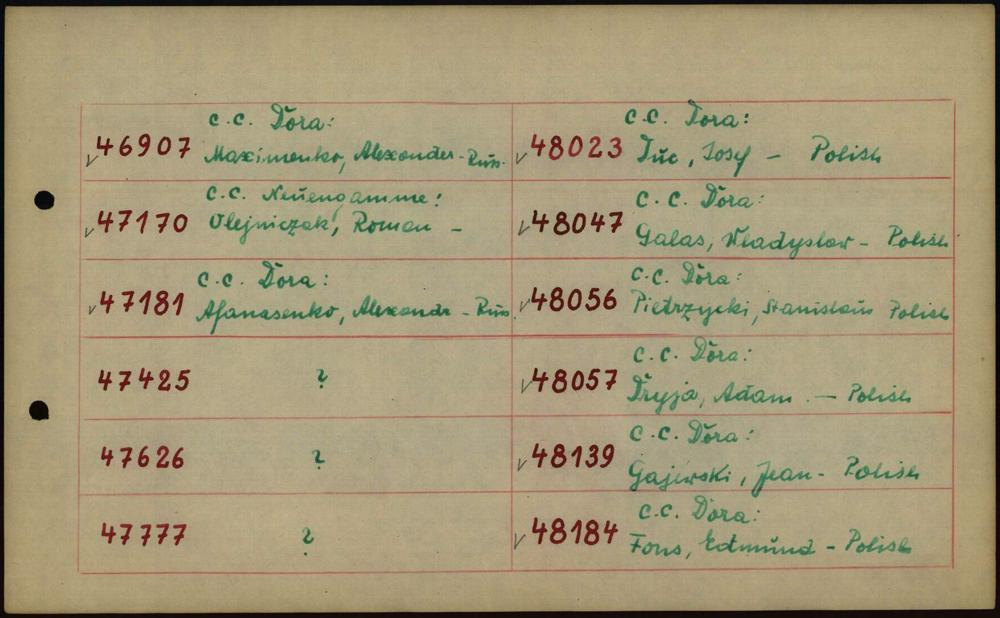 c.c. Dora:
46907 Maximenko, Alexander - Rus.
c.c. Neuengamme:
47170 Olejniczak, Roman -
c.c. Dora:
47181 Afanasenko, Alexandr - Rus.
47425 ?
47626 ?
47777 ?
c.c. Dora:
48023 Duc, Josef - Polish
c.c. Dora:
48047 Galas, Wladyslaw - Polish
c.c. Dora:
48056 Pietrzycki, Stanislaus Polish
c.c. Dora:
48057 Dryja, Adam - Polish
c.c. Dora:
48139 Gajewski, Jean - Polish
c.c. Dora:
48184 Fons, Edmund - Polish